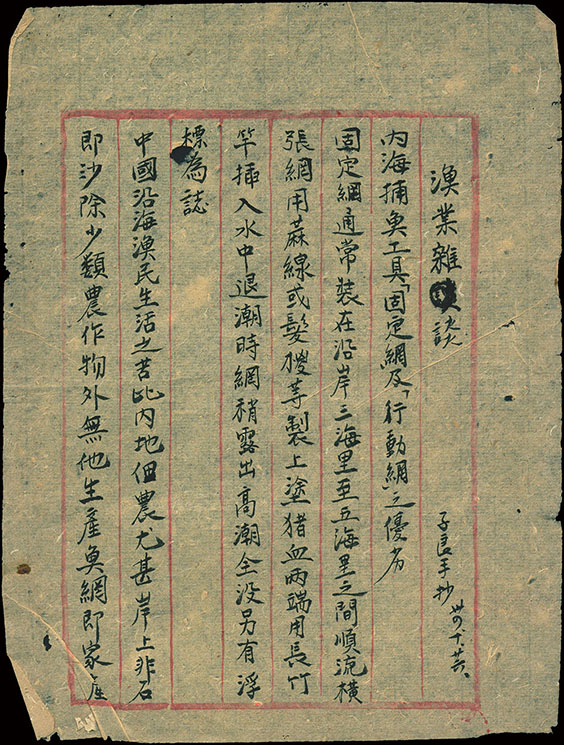 漁業雜談
子良手抄 卅四、十、廿六、
內海捕魚工具「固定網及「行動網」之優劣
固定網通常裝在沿岸三海里至五海里之間順流橫
張網用蔴線或髮㮴等製上塗猪血兩端用長竹
竿插入水中退潮時網稍露出高潮全沒另有浮
標為誌
中國沿海漁民生活之苦比內地佃農尤甚岸上非石
即沙除少類農作物外無他生產魚網即家產